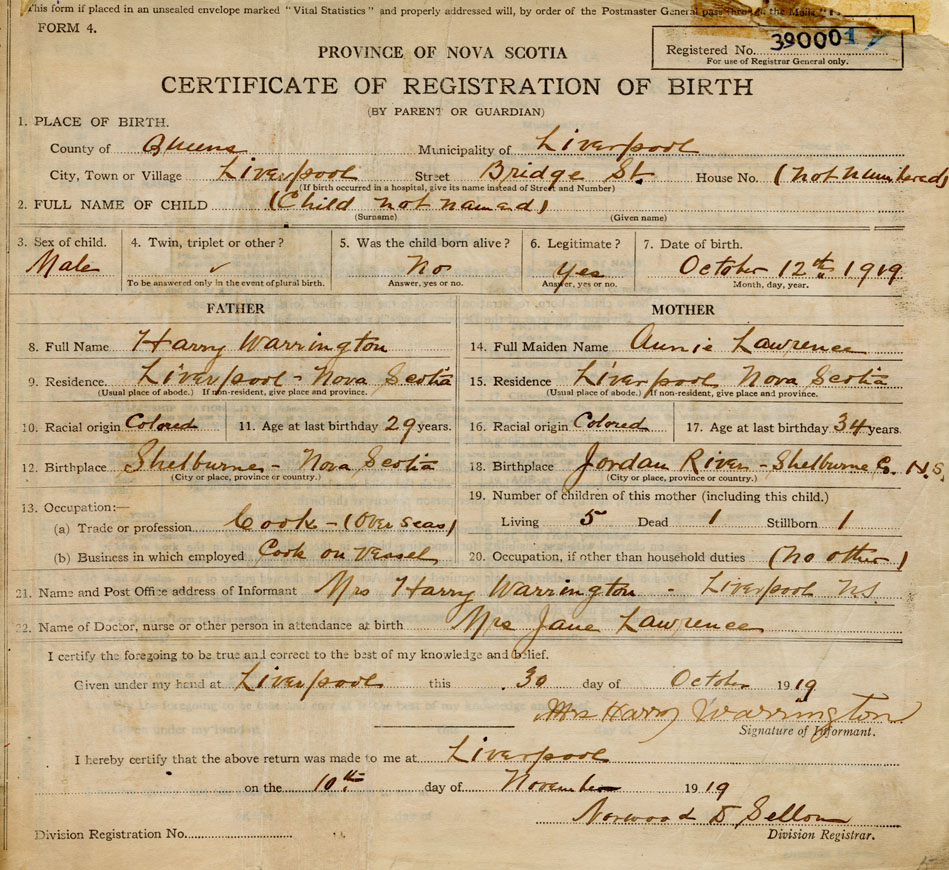 This form if placed in an unsealed envelope marked "Vital Statistics" and properly addressed will, by order of the Postmaster General pass through the Mails "
FORM 4.
Registered No. 390001
For use of Registrar General only.
PROVINCE OF NOVA SCOTIA
CERTIFICATE OF REGISTRATION OF BIRTH
(BY PARENT OR GUARDIAN)
1. PLACE OF BIRTH.
County of Queens Municipality of Liverpool
City, Town or Village Liverpool Street Bridge St. House No. (not numbered)
(If birth occurred in a hospital, give its name instead of Street and Number)
2. FULL NAME OF CHILD (Child not named)
(Surname) (Given name)
3. Sex of child. 4. Twin, triplet or other? 5. Was the child born alive? 6. Legitimate? 7. Date of birth.
Male ✓ No Yes October 12th 1919
To be answered only in the event of plural birth. Answer, yes or no. Answer, yes or no. Month, day, year.
FATHER MOTHER
8. Full Name Harry Warrington 14. Full Maiden Name Annie Lawrence
9. Residence Liverpool - Nova Scotia 15. Residence Liverpool Nova Scotia
(Usual place of abode.) If non-resident, give place and province. (Usual place of abode.) If non-resident, give place and province.
10. Racial origin Colored 11. Age at last birthday 29 years. 16. Racial origin Colored 17. Age at last birthday 34 years.
12. Birthplace Shelburne - Nova Scotia 18. Birthplace Jordan River - Shelburne Co. N.S.
(City or place, province or country.) (City or place, province or country.)
13. Occupation:— 19. Number of children of this mother (including this child.)
(a) Trade or profession Cook - (over seas) Living 5 Dead 1 Stillborn 1
(b) Business in which employed Cook on Vessel 20. Occupation, if other than household duties (no other)
21. Name and Post Office address of Informant Mrs Harry Warrington - Liverpool N.S.
22. Name of Doctor, nurse or other person in attendance at birth Mrs Jane Lawrence
I certify the foregoing to be true and correct to the best of my knowledge and belief.
Given under my hand at Liverpool this 30 day of October 1919
Mrs Harry Warrington
Signature of Informant.
I hereby certify that the above return was made to me at Liverpool
on the 10th day of November 1919
Norwood Sellon
Division Registration No. Division Registrar.